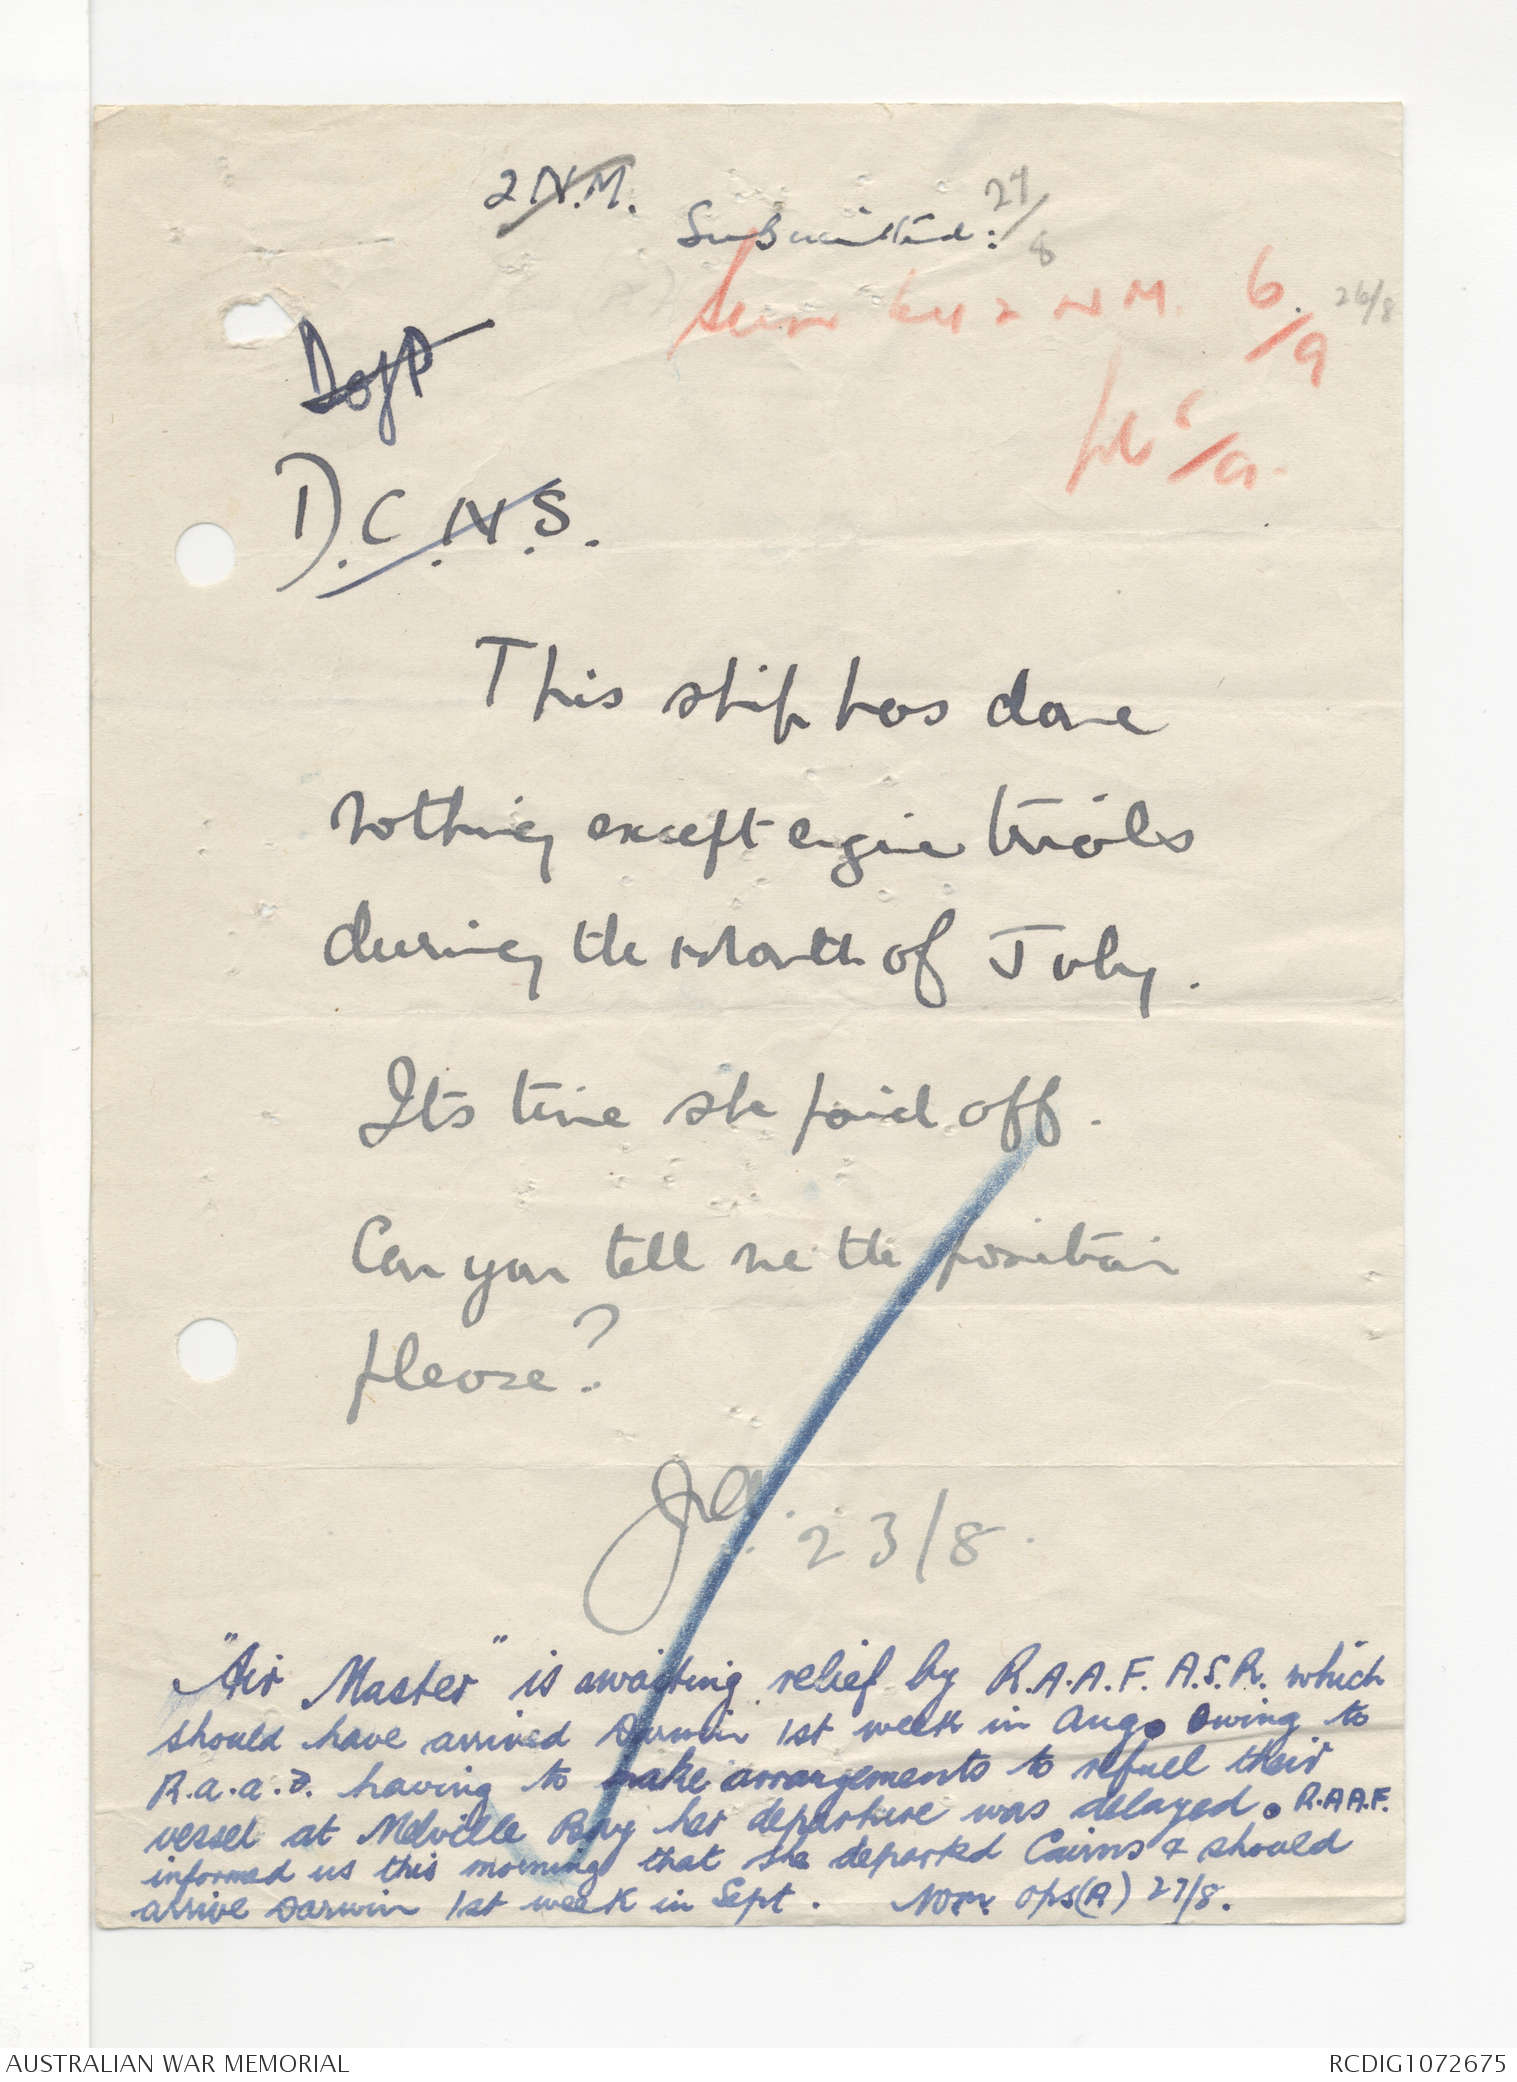 2 N.M.
Submitted: 27/8
Seen by 2 NM. 6/9 26/8
6/9.
D of P
D.C.N.S.
This ship has done
nothing except engine trials
during the month of July.
Its time she paid off.
Can you tell me the position
please?
23/8.
"Air Master" is awaiting relief by R.A.A.F. A.S.R. which
should have arrived Darwin 1st week in Aug. Owing to
R.a.a.F. having to make arrangements to refuel their
vessel at Melville Bay her departure was delayed. R.A.A.F.
informed us this morning that she departed Cairns & should
arrive Darwin 1st week in Sept. Ops(A) 27/8.
AUSTRALIAN WAR MEMORIAL
RCDIG1072675